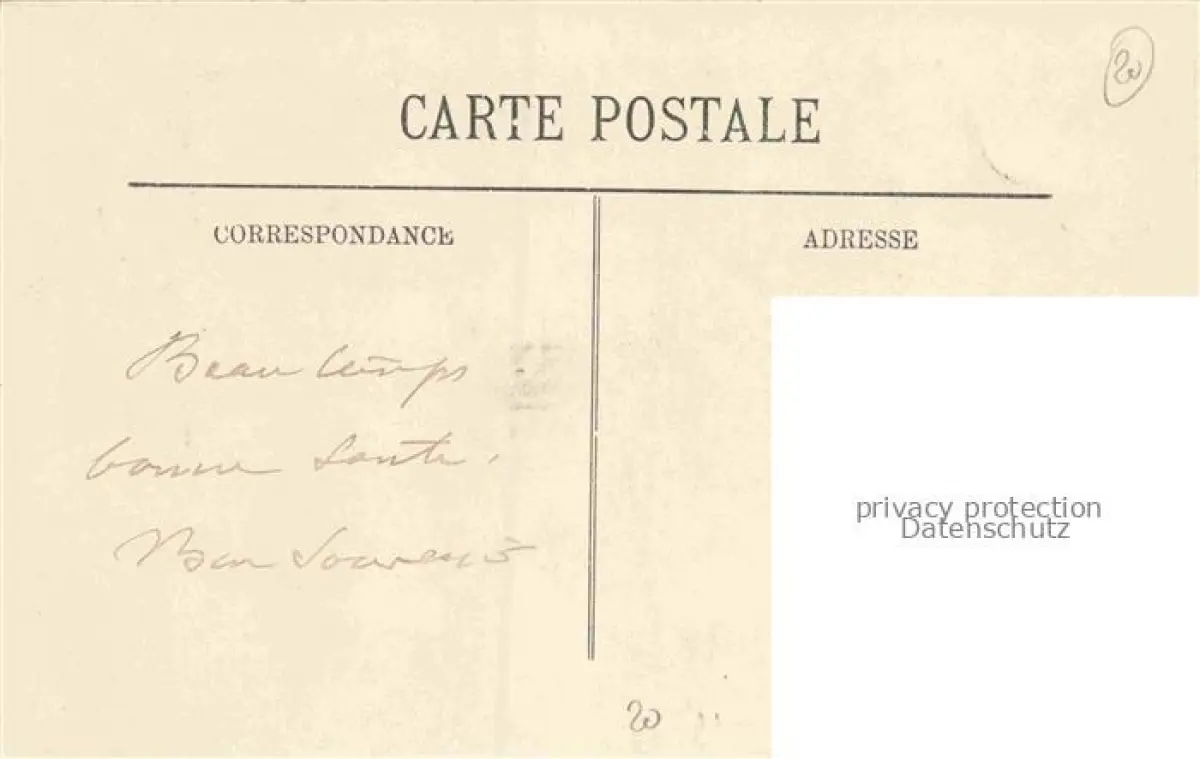 20
CARTE POSTALE
CORRESPONDANCE
ADRESSE
Beau temps
bonne Santé.
Bon Souvenir
privacy protection
Datenschutz
20